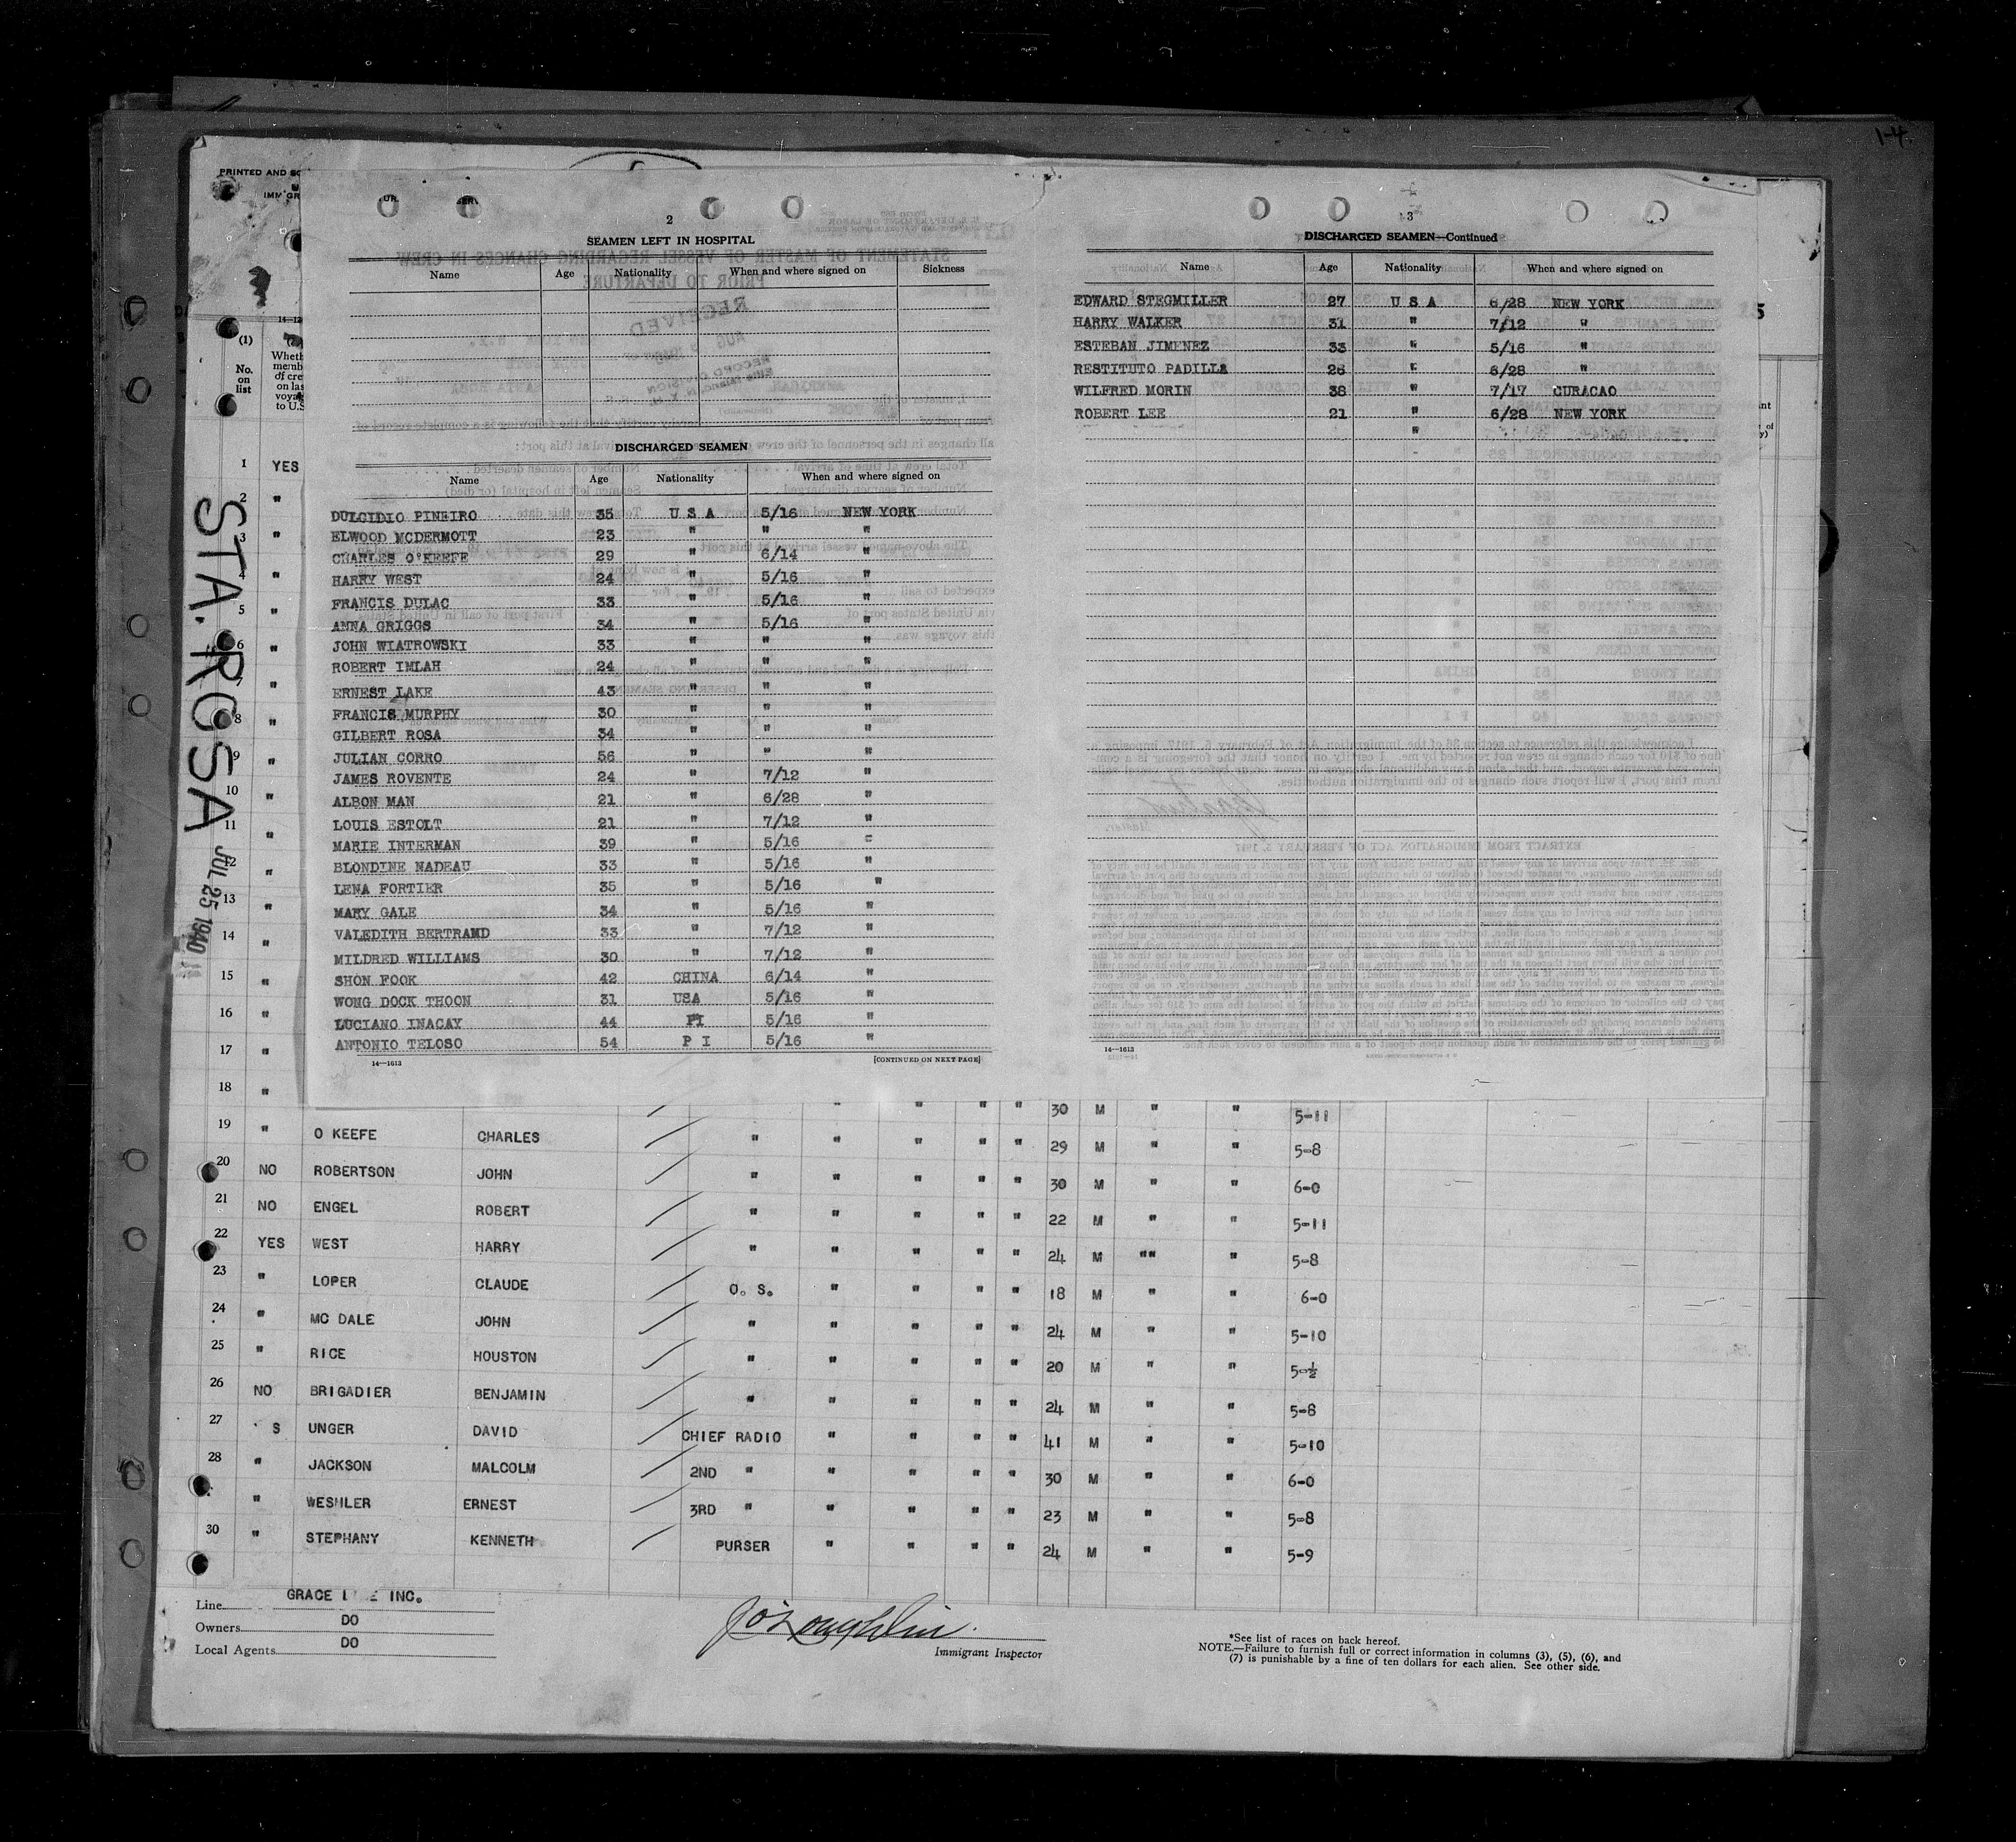 1-4.
PRINTED AND
2
SEAMEN LEFT IN HOSPITAL
Name Age Nationality When and where signed on Sickness
DISCHARGED SEAMEN
Name Age Nationality When and where signed on
DULCIDIO PINEIRO 35 U S A 5/16 NEW YORK
ELWOOD MCDERMOTT 23 " " "
CHARLES O'KEEFE 29 " 6/14 "
HARRY WEST 24 " 5/16 "
FRANCIS DULAC 33 " 5/16 "
ANNA GRIGGS 34 " 5/16 "
JOHN WIATROWSKI 33 " " "
ROBERT IMLAH 24 " " "
ERNEST LAKE 43 " " "
FRANCIS MURPHY 30 " " "
GILBERT ROSA 34 " " "
JULIAN CORRO 56 " " "
JAMES ROVENTE 24 " 7/12 "
ALBON MAN 21 " 6/28 "
LOUIS ESTOLT 21 " 7/12 "
MARIE INTERMAN 39 " 5/16 "
BLONDINE NADEAU 33 " 5/16 "
LENA FORTIER 35 " 5/16 "
MARY GALE 34 " 5/16 "
VALEDITH BERTRAND 33 " 7/12 "
MILDRED WILLIAMS 30 " 7/12 "
SHON FOOK 42 CHINA 6/14 "
WONG DOCK THOON 31 USA 5/16 "
LUCIANO INACAY 44 PI 5/16 "
ANTONIO TELOSO 54 P I 5/16 "
14—1613 [CONTINUED ON NEXT PAGE]
3
DISCHARGED SEAMEN—Continued
Name Age Nationality When and where signed on
EDWARD STEGMILLER 27 U S A 6/28 NEW YORK
HARRY WALKER 31 " 7/12 "
ESTEBAN JIMENEZ 33 " 5/16 "
RESTITUTO PADILLA 26 " 6/28 "
WILFRED MORIN 38 " 7/17 CURACAO
ROBERT LEE 21 " 6/28 NEW YORK
"
14—1613
(1)
No.
on
list
STA. ROSA
JUL 25 1940
1 YES
2 "
3 "
4 "
5 "
6 "
7 "
8 "
9 "
10 "
11 "
12 "
13 "
14 "
15 "
16 "
17 "
18 " " " " " " 30 M " " 5-11
19 " O KEEFE CHARLES " " " " " 29 M " " 5-8
20 NO ROBERTSON JOHN " " " " " 30 M " " 6-0
21 NO ENGEL ROBERT " " " " " 22 M " " 5-11
22 YES WEST HARRY " " " " " 24 M "" " 5-8
23 " LOPER CLAUDE O. S. " " " " 18 M " " 6-0
24 " MC DALE JOHN " " " " " 24 M " " 5-10
25 " RICE HOUSTON " " " " " 20 M " " 5-½
26 NO BRIGADIER BENJAMIN " " " " " 24 M " " 5-8
27 S UNGER DAVID CHIEF RADIO " " " " 41 M " " 5-10
28 " JACKSON MALCOLM 2ND " " " " " 30 M " " 6-0
" WESHLER ERNEST 3RD " " " " " 23 M " " 5-8
30 " STEPHANY KENNETH PURSER " " " " 24 M " " 5-9
Line GRACE L E INC.
Owners DO
Local Agents DO
J O'Loughlin
Immigrant Inspector
*See list of races on back hereof.
NOTE.—Failure to furnish full or correct information in columns (3), (5), (6), and
(7) is punishable by a fine of ten dollars for each alien. See other side.